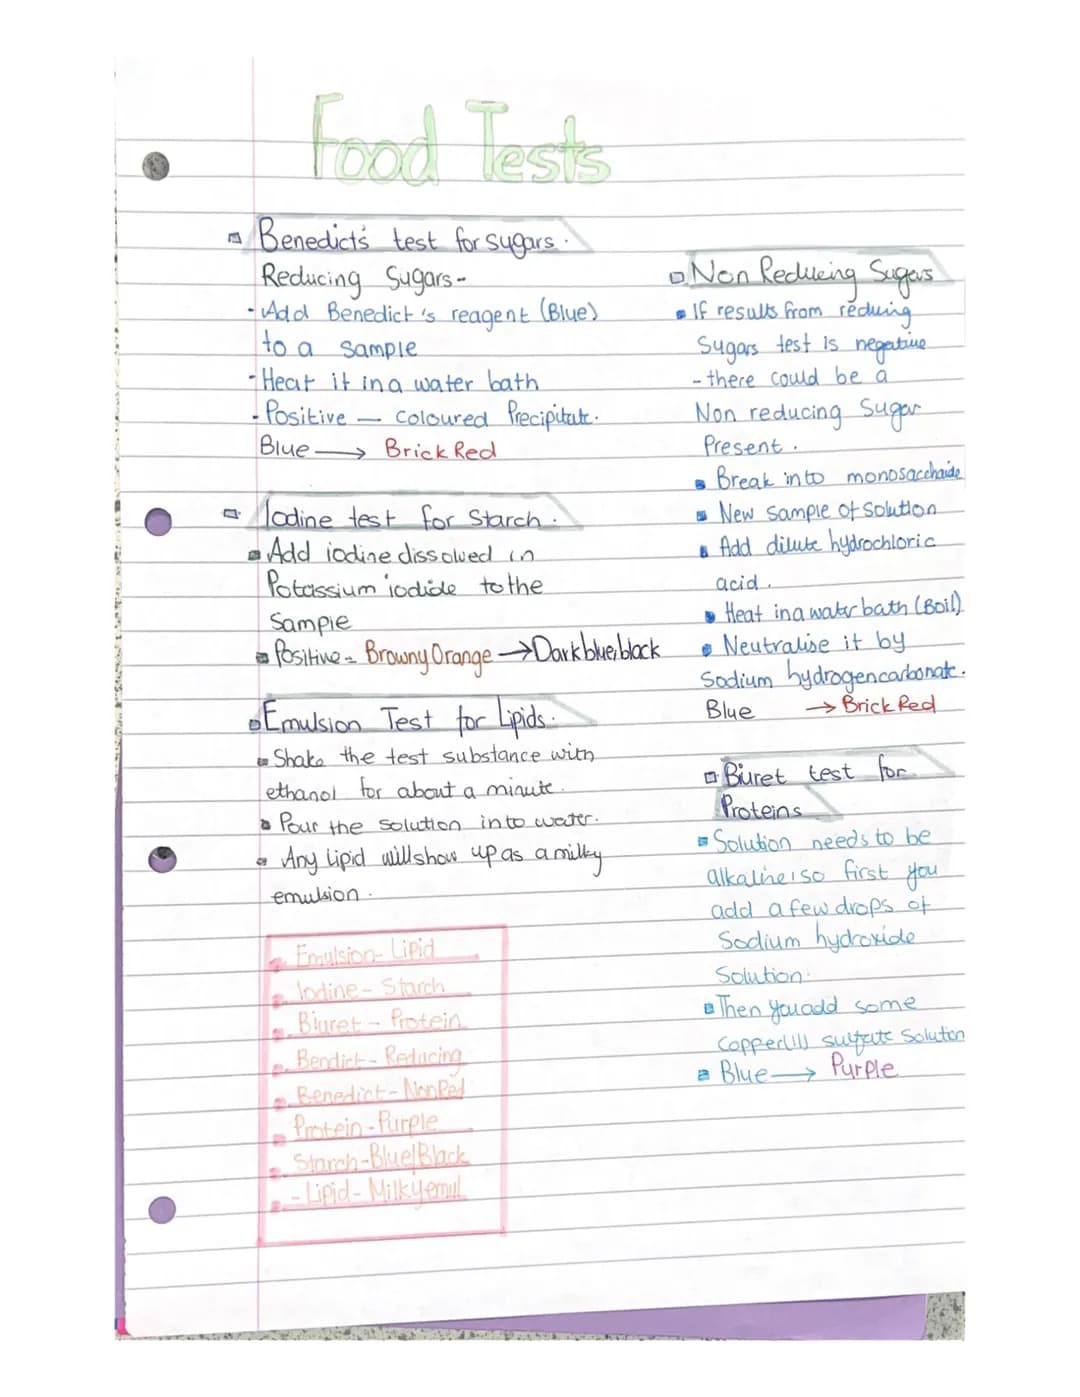 Food Tests
Benedict's test for sugars.
Reducing Sugars-
- Add Benedict's reagent (Blue)
to a sample
- Heat it in a water bath
- Positive - coloured Precipitate.
Blue → Brick Red
Iodine test for Starch.
Add iodine dissolved in
Potassium iodide to the
Sample
Positive - Browny Orange → Dark blue/black
Emulsion Test for Lipids.
Shake the test substance with
ethanol for about a minute.
Pour the solution into water.
Any lipid will show up as a milky
emulsion.
Emulsion- Lipid
Iodine - Starch
Biuret - Protein
Bendict - Reducing
Benedict - NonRed
Protein - Purple
Starch - Blue/Black
- Lipid - Milkyemul
Non Reducing Sugars
If results from reducing
Sugars test is negative
- there could be a
Non reducing Sugar
Present.
Break into monosacchaide
New sample of solution
Add dilute hydrochloric
acid.
Heat in a water bath (Boil)
Neutralise it by
Sodium hydrogencarbonate.
Blue → Brick Red
Biuret test for
Proteins
Solution needs to be
alkaline, so first you
add a few drops of
Sodium hydroxide
Solution.
Then you add some
Copper(II) sulfate Solution
Blue → Purple